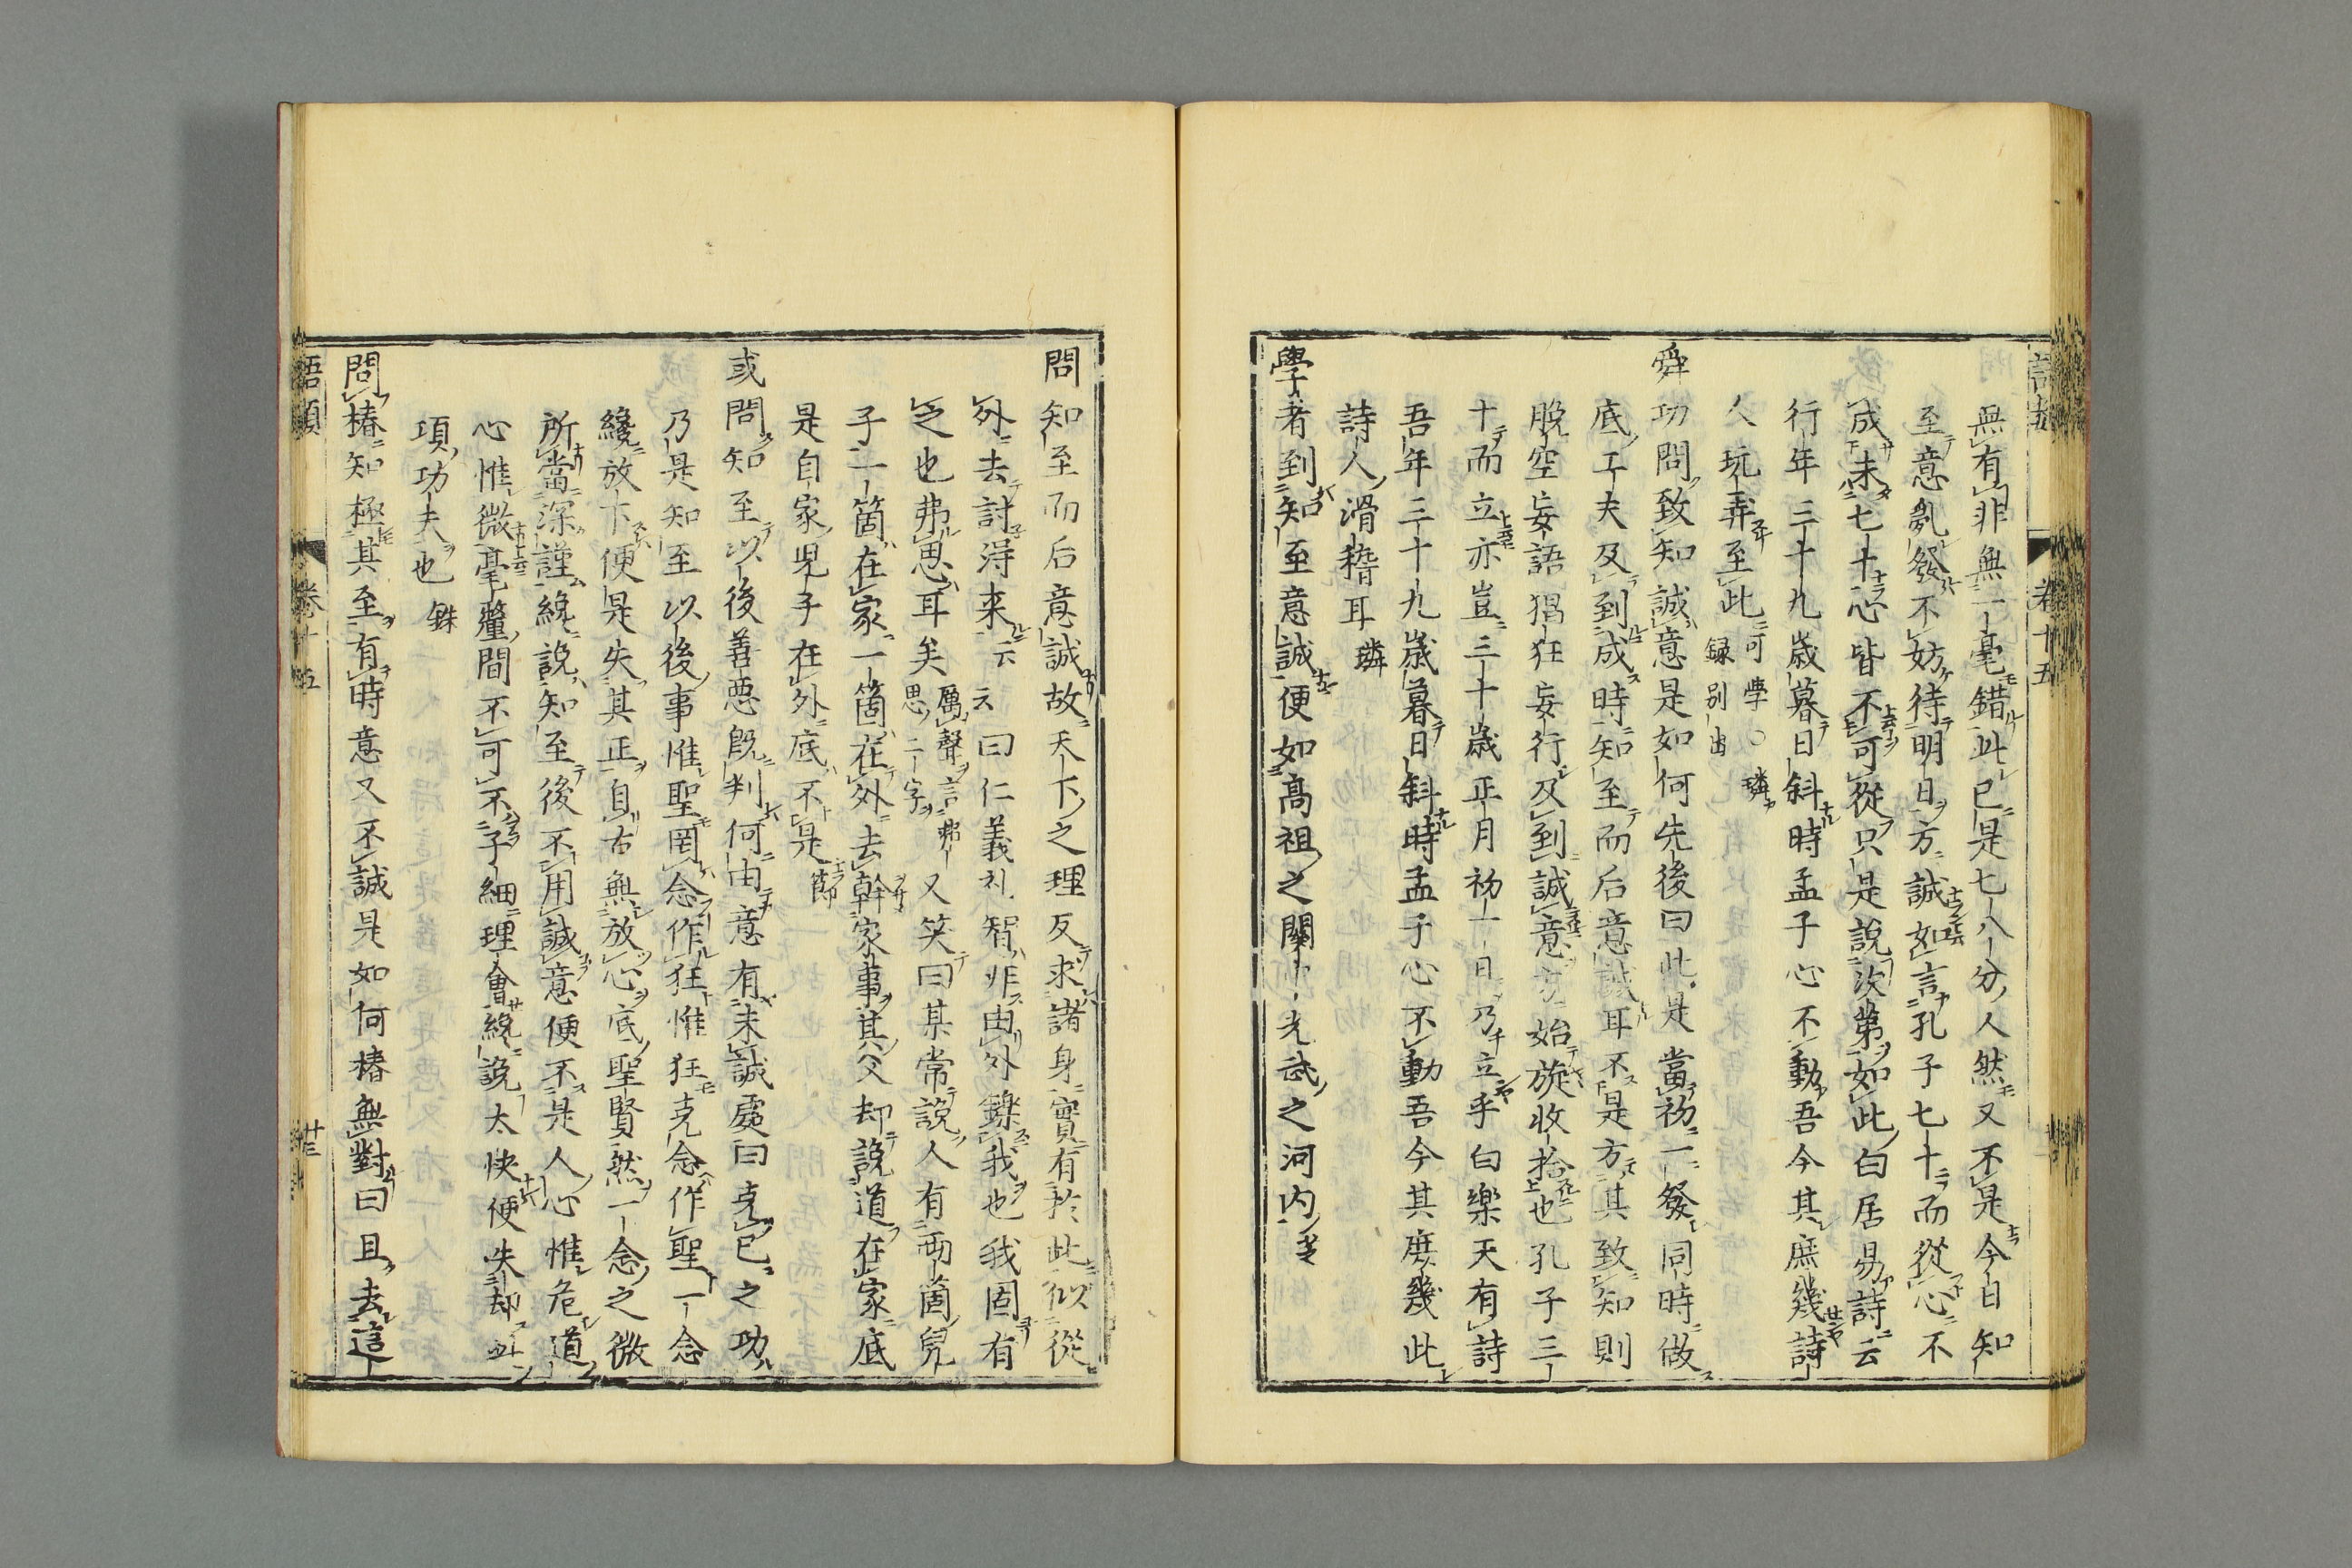 無有非無一毫錯此已是七八分人然又不是今日知
至意亂發不妨待明日方誠如言孔子七十而從心不
成未七十心皆不可從只是說次第如此白居易詩云
行年三十九歲暮日斜時孟子心不動吾今其庶幾詩
人玩弄至此可學〇璘録別出
舜功問致知誠意是如何先後曰此是當初一發同時做
底工夫及到成時知至而后意誠耳不是方其致知則
脫空妄語猖狂妄行及到誠意方始旋收拾也孔子三
十而立亦豈三十歲正月初一日乃立乎白樂天有詩
吾年三十九歲暮日斜時孟子心不動吾今其庶幾此
詩人滑稽耳璘
學者到知至意誠便如高祖之關中光武之河内芝
問知至而后意誠故天下之理反求諸身實有於此似從
外去討得来云云曰仁義礼智非由外鑠我也我固有
之也弗思耳矣厲聲言弗思二字又笑曰某常說人有兩箇兒
子一箇在家一箇在外去幹家事其父却說道在家底
是自家兒子在外底不是節
或問知至以後善惡既判何由意有未誠處曰克己之功
乃是知至以後事惟聖罔念作狂惟狂克念作聖一念
纔放下便是失其正自古無放心底聖賢然一念之微
所當深謹纔說知至後不用誠意便不是人心惟危道
心惟微毫釐間不可不子細理會纔說太快便失却此
項功夫也銖
問椿知極其至有時意又不誠是如何椿無對曰且去這
語類
卷十五